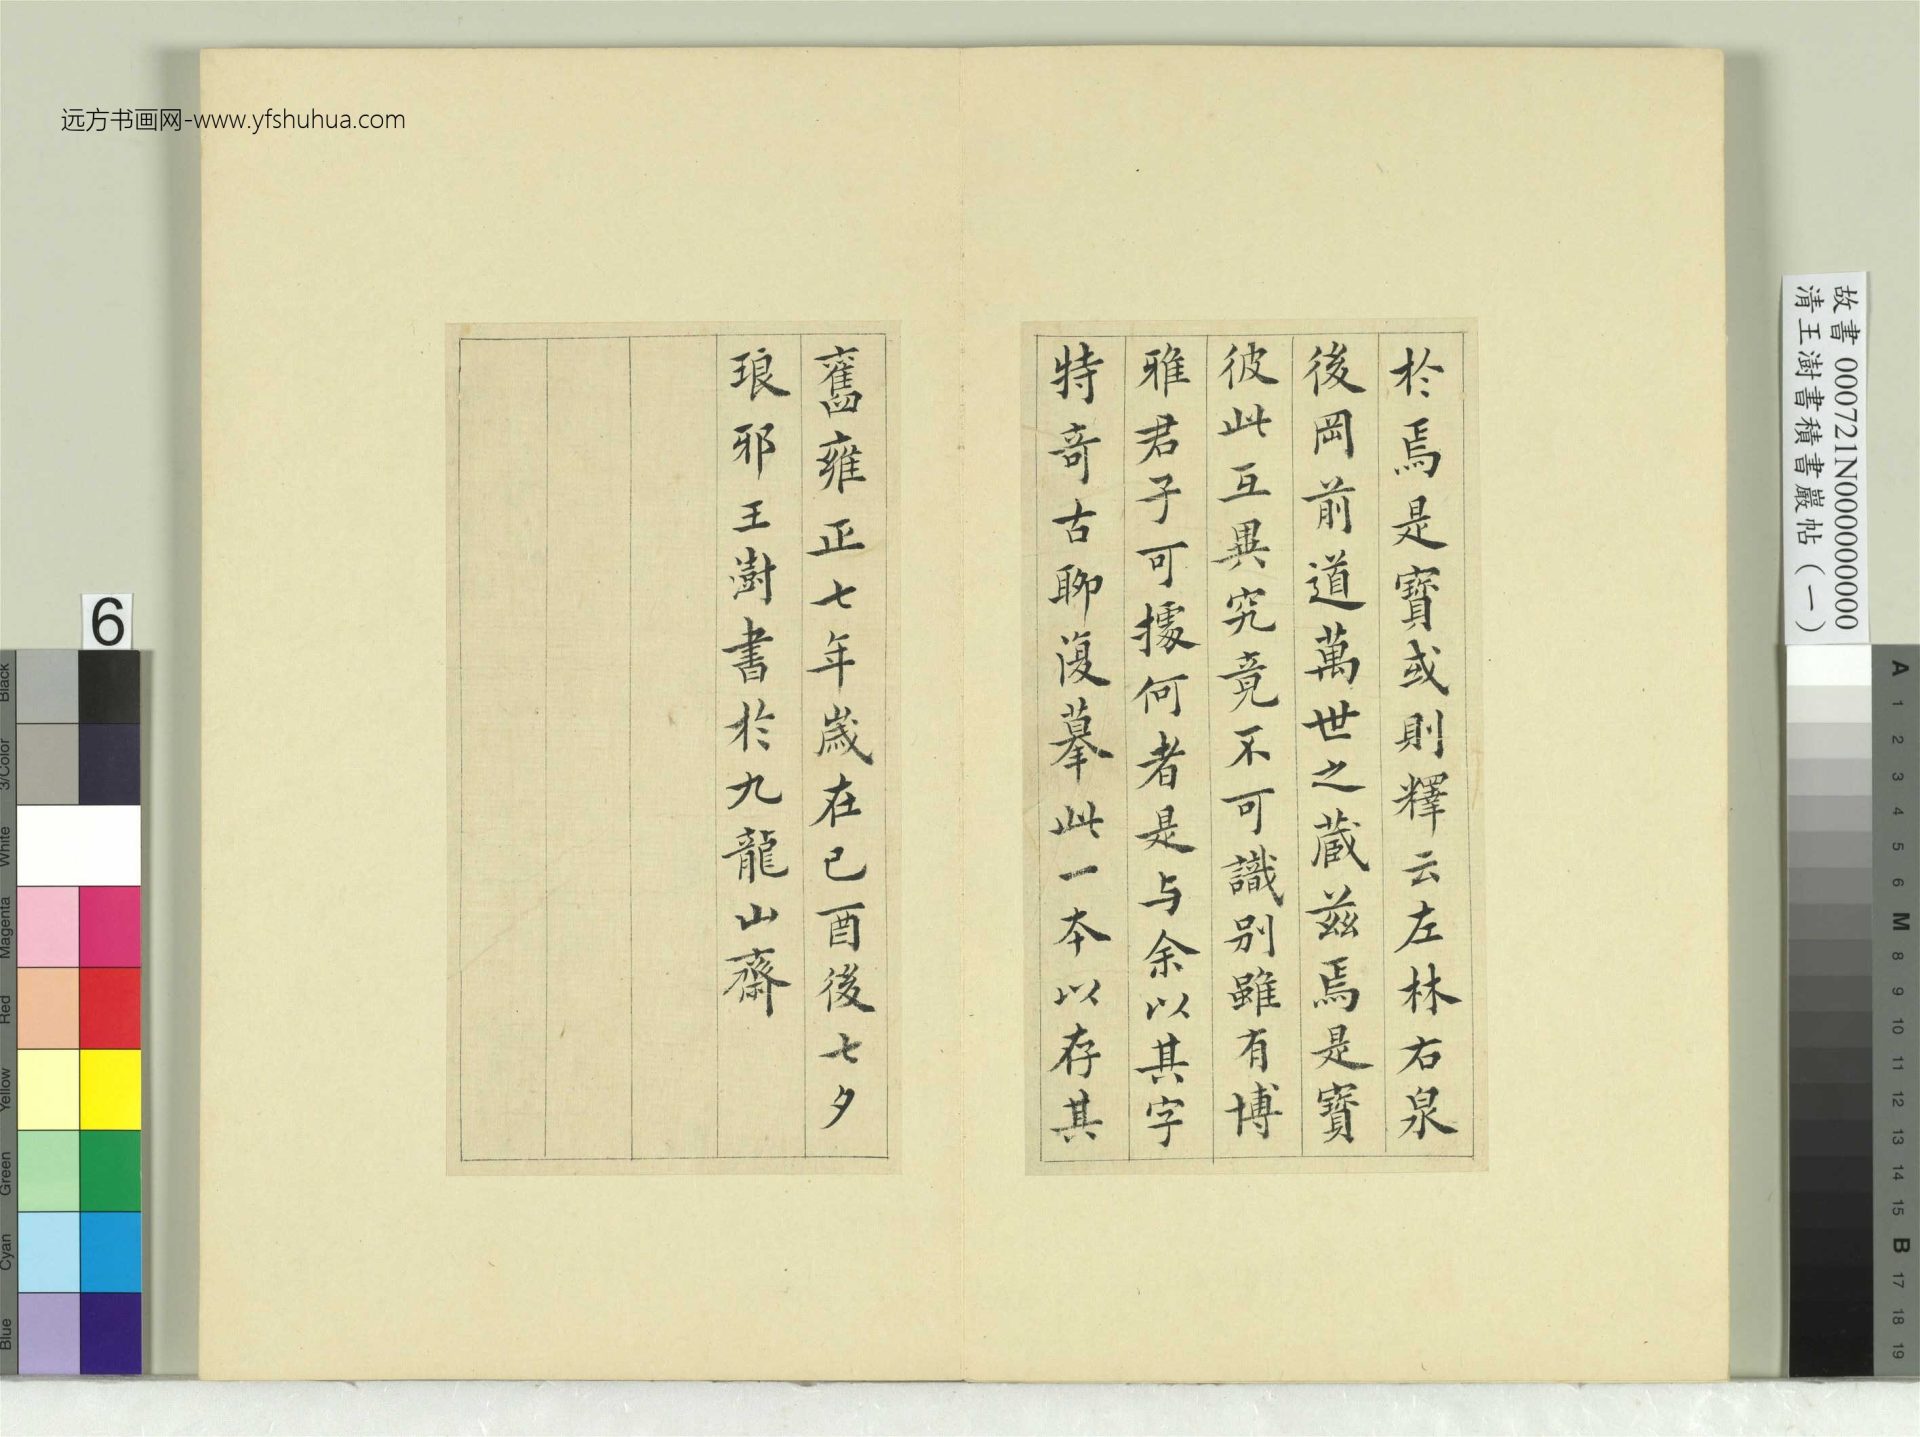 远方书画网-www.yfshuhua.com
於焉是寶或則釋云左林右泉
後岡前道萬世之蔵茲焉是寶
彼此互異究竟不可識別雖有博
雅君子可據何者是与余以其字
特奇古聊復摹此一本以存其
舊雍正七年嵗在己酉後七夕
琅邪王澍書於九龍山齋
故書 000721N000000000
清王澍書積書巖帖（一）
6
Black
3/Color
White
Magenta
Red
Yellow
Green
Cyan
Blue
A
1
2
3
4
5
6
M
8
9
10
11
12
13
14
15
B
17
18
19